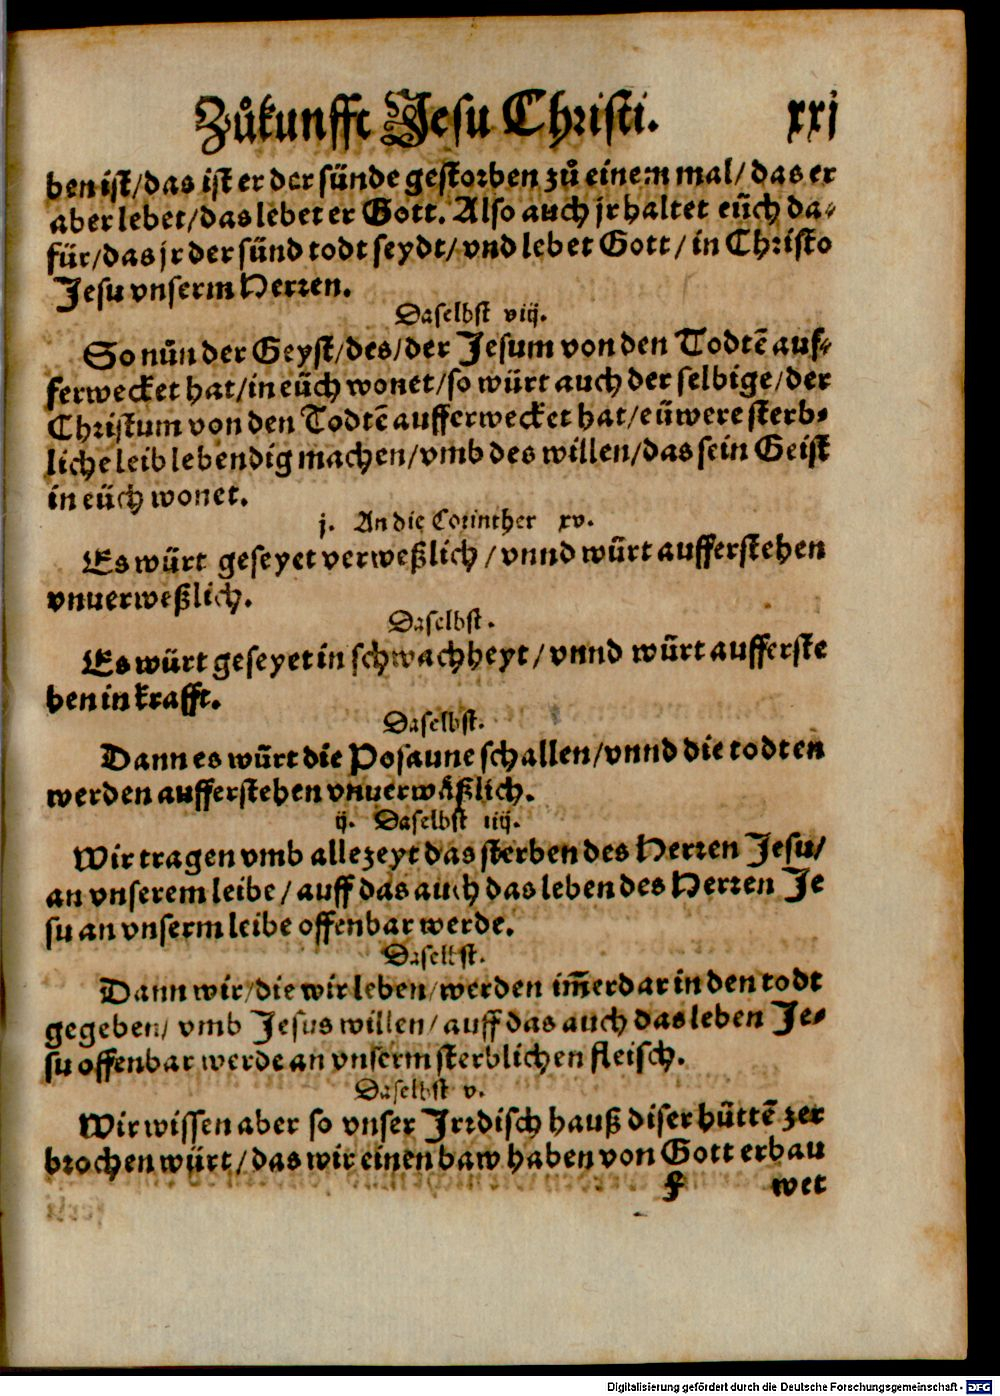 Zůkunfft Jesu Christi. xxj
ben ist/das ist er der sünde gestorben zů einem mal/ das er
aber lebet/das lebet er Gott. Also auch jr haltet eüch da-
für/das jr der sünd todt seydt/vnd lebet Gott/ in Christo
Jesu vnserm Herren.
Daselbst viij.
So nůn der Geyst/des/der Jesum von den Todtē auf-
ferwecket hat/in eüch wonet/so würt auch der selbige/der
Christum von den Todtē aufferwecket hat/eüwere sterb-
liche leib lebendig machen/vmb des willen/das sein Geist
in eüch wonet.
j. An die Corinther xv.
Es würt geseyet verweßlich/vnnd würt aufferstehen
vnuerweßlich.
Daselbst.
Es würt geseyet in schwachheyt/vnnd würt aufferste
hen in krafft.
Daselbst.
Dann es würt die Posaune schallen/vnnd die todten
werden aufferstehen vnuerwäßlich.
ij. Daselbst iiij.
Wir tragen vmb allezeyt das sterben des Herren Jesu/
an vnserem leibe/auff das auch das leben des Herren Je
su an vnserm leibe offenbar werde.
Daselbst.
Dann wir/die wir leben/werden im̄erdar in den todt
gegeben/ vmb Jesus willen/auff das auch das leben Je-
su offenbar werde an vnserm sterblichen fleisch.
Daselbst v.
Wir wissen aber so vnser Jrrdisch hauß diser hüttē zer
brochen würt/das wir einen baw haben von Gott erbau
f wet
Digitalisierung gefördert durch die Deutsche Forschungsgemeinschaft - DFG